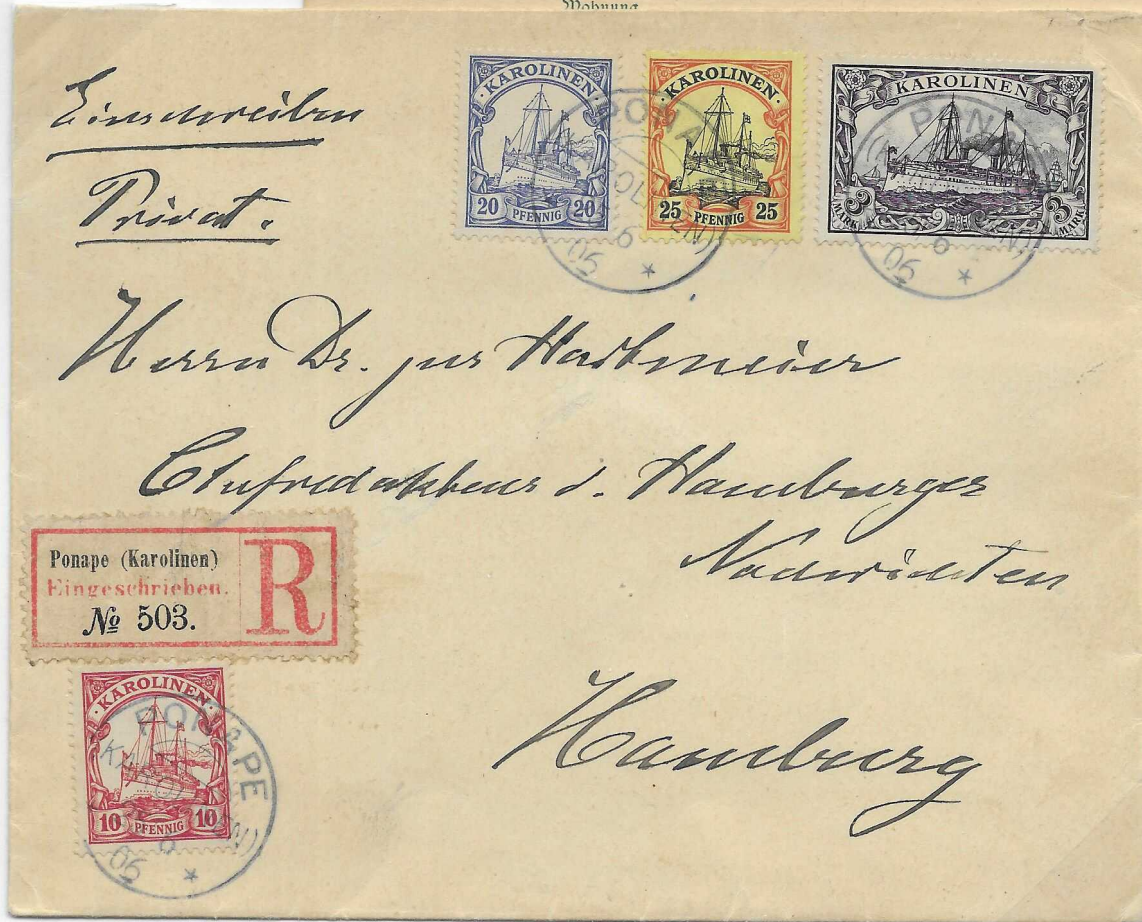 Wohnung
Einschreiben
Privat.
KAROLINEN
20 PFENNIG 20
KAROLINEN
25 PFENNIG 25
KAROLINEN
3 MARK 3 MARK
Herrn Dr. jur Hartmeier
Chefredakteur d. Hamburger
Nachrichten
Hamburg
Ponape (Karolinen)
Eingeschrieben.
№ 503.
R
KAROLINEN
10 PFENNIG 10
PONAPE